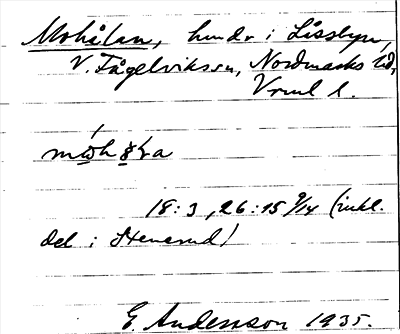 Mohålan, hmdr i Låssbyn,
V. Fågelviks sn, Nordmarks hd,
Vrml l.
18:3, 26:15 9/14 (inkl.
del i Stensrud)
E Andersson 1935.